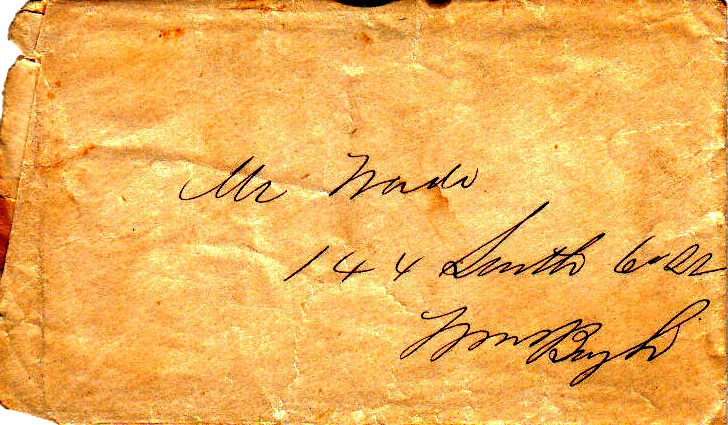 Mr Wade
144 South 6 St
WmsBurgh